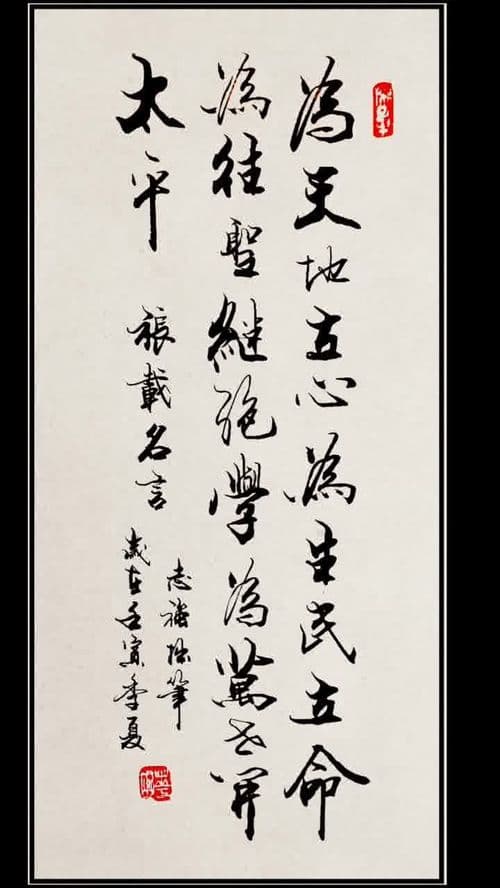 為天地立心為生民立命
為往聖繼絕學為萬世開
太平 張載名言
志 筆
歲在壬寅季夏